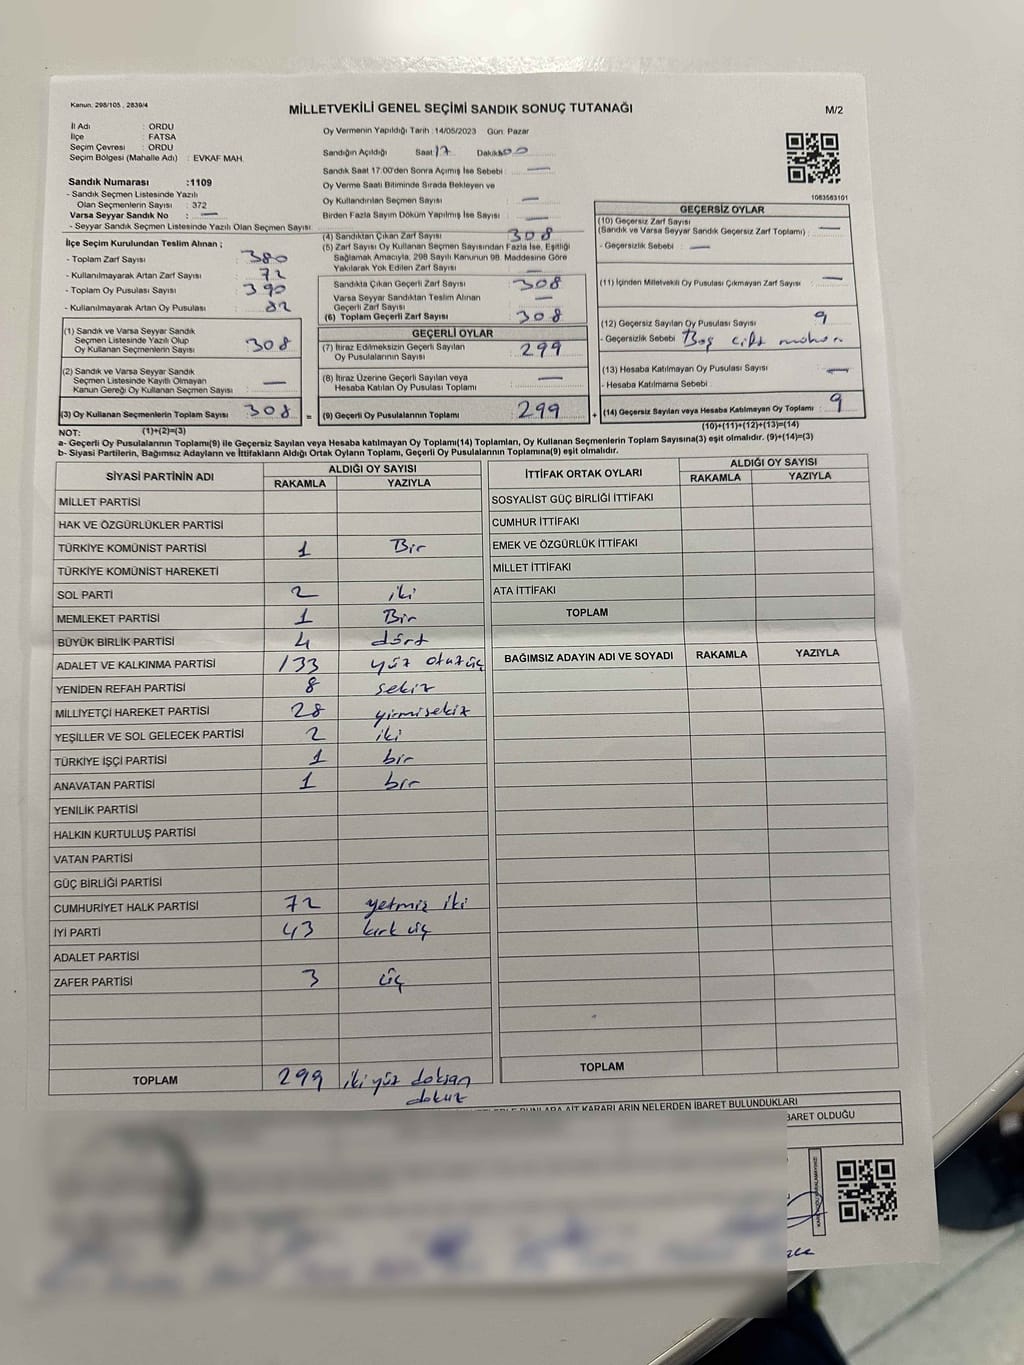 Kanun: 298/105 , 2839/4
MİLLETVEKİLİ GENEL SEÇİMİ SANDIK SONUÇ TUTANAĞI
M/2
İl Adı : ORDU
İlçe : FATSA
Seçim Çevresi : ORDU
Seçim Bölgesi (Mahalle Adı) : EVKAF MAH.
Oy Vermenin Yapıldığı Tarih :14/05/2023 Gün: Pazar
Sandığın Açıldığı Saat 17 Dakika 00
Sandık Saat 17:00'den Sonra Açılmış İse Sebebi : —
Oy Verme Saati Bitiminde Sırada Bekleyen ve
Oy Kullandırılan Seçmen Sayısı : —
Birden Fazla Sayım Döküm Yapılmış İse Sayısı : —
1063563101
Sandık Numarası :1109
- Sandık Seçmen Listesinde Yazılı
Olan Seçmenlerin Sayısı : 372
Varsa Seyyar Sandık No : —
- Seyyar Sandık Seçmen Listesinde Yazılı Olan Seçmen Sayısı:
İlçe Seçim Kurulundan Teslim Alınan ;
- Toplam Zarf Sayısı : 380
- Kullanılmayarak Artan Zarf Sayısı : 72
- Toplam Oy Pusulası Sayısı : 390
- Kullanılmayarak Artan Oy Pusulası : 82
(1) Sandık ve Varsa Seyyar Sandık
Seçmen Listesinde Yazılı Olup
Oy Kullanan Seçmenlerin Sayısı : 308
(2) Sandık ve Varsa Seyyar Sandık
Seçmen Listesinde Kayıtlı Olmayan
Kanun Gereği Oy Kullanan Seçmen Sayısı : —
(3) Oy Kullanan Seçmenlerin Toplam Sayısı : 308 =
(1)+(2)=(3)
(4) Sandıktan Çıkan Zarf Sayısı : 308
(5) Zarf Sayısı Oy Kullanan Seçmen Sayısından Fazla İse, Eşitliği
Sağlamak Amacıyla, 298 Sayılı Kanunun 98. Maddesine Göre
Yakılarak Yok Edilen Zarf Sayısı : —
Sandıkta Çıkan Geçerli Zarf Sayısı : 308
Varsa Seyyar Sandıktan Teslim Alınan
Geçerli Zarf Sayısı : —
(6) Toplam Geçerli Zarf Sayısı : 308
GEÇERLİ OYLAR
(7) İtiraz Edilmeksizin Geçerli Sayılan
Oy Pusulalarının Sayısı : 299
(8) İtiraz Üzerine Geçerli Sayılan veya
Hesaba Katılan Oy Pusulası Toplamı : —
(9) Geçerli Oy Pusulalarının Toplamı : 299 +
GEÇERSİZ OYLAR
(10) Geçersiz Zarf Sayısı
(Sandık ve Varsa Seyyar Sandık Geçersiz Zarf Toplamı) : —
- Geçersizlik Sebebi : —
(11) İçinden Milletvekili Oy Pusulası Çıkmayan Zarf Sayısı : —
(12) Geçersiz Sayılan Oy Pusulası Sayısı : 9
- Geçersizlik Sebebi Boş çift mühür
(13) Hesaba Katılmayan Oy Pusulası Sayısı : —
- Hesaba Katılmama Sebebi :
(14) Geçersiz Sayılan veya Hesaba Katılmayan Oy Toplamı : 9
(10)+(11)+(12)+(13)=(14)
NOT:
a- Geçerli Oy Pusulalarının Toplamı(9) ile Geçersiz Sayılan veya Hesaba katılmayan Oy Toplamı(14) Toplamları, Oy Kullanan Seçmenlerin Toplam Sayısına(3) eşit olmalıdır. (9)+(14)=(3)
b- Siyasi Partilerin, Bağımsız Adayların ve İttifakların Aldığı Ortak Oyların Toplamı, Geçerli Oy Pusulalarının Toplamına(9) eşit olmalıdır.
SİYASİ PARTİNİN ADI
ALDIĞI OY SAYISI
RAKAMLA YAZIYLA
MİLLET PARTİSİ
HAK VE ÖZGÜRLÜKLER PARTİSİ
TÜRKİYE KOMÜNİST PARTİSİ 1 Bir
TÜRKİYE KOMÜNİST HAREKETİ
SOL PARTİ 2 iki
MEMLEKET PARTİSİ 1 Bir
BÜYÜK BİRLİK PARTİSİ 4 dört
ADALET VE KALKINMA PARTİSİ 133 yüz otuz üç
YENİDEN REFAH PARTİSİ 8 sekiz
MİLLİYETÇİ HAREKET PARTİSİ 28 yirmisekiz
YEŞİLLER VE SOL GELECEK PARTİSİ 2 iki
TÜRKİYE İŞÇİ PARTİSİ 1 bir
ANAVATAN PARTİSİ 1 bir
YENİLİK PARTİSİ
HALKIN KURTULUŞ PARTİSİ
VATAN PARTİSİ
GÜÇ BİRLİĞİ PARTİSİ
CUMHURİYET HALK PARTİSİ 72 yetmiş iki
İYİ PARTİ 43 kırk üç
ADALET PARTİSİ
ZAFER PARTİSİ 3 üç
TOPLAM 299 iki yüz doksan
dokuz
İTTİFAK ORTAK OYLARI
ALDIĞI OY SAYISI
RAKAMLA YAZIYLA
SOSYALİST GÜÇ BİRLİĞİ İTTİFAKI
CUMHUR İTTİFAKI
EMEK VE ÖZGÜRLÜK İTTİFAKI
MİLLET İTTİFAKI
ATA İTTİFAKI
TOPLAM
BAĞIMSIZ ADAYIN ADI VE SOYADI RAKAMLA YAZIYLA
TOPLAM
BUNLARA AİT KARARLARIN NELERDEN İBARET BULUNDUKLARI
İBARET OLDUĞU